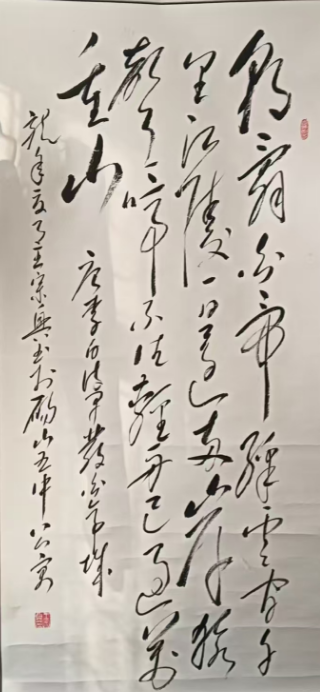 朝辭白帝彩雲間千
里江陵一日還兩岸猿
聲啼不住輕舟已過萬
重山
唐李白詩早發白帝城
龍年夏月王宗興書於碭山五中公寓